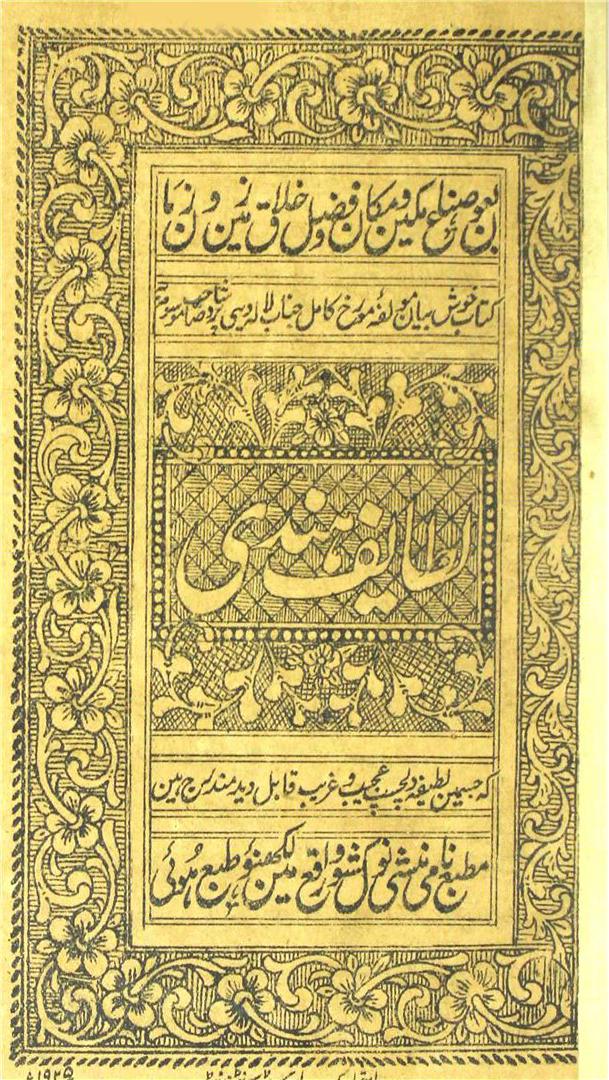 بعون صناع مکین و مکان و فضل خلاق زمین و زمان
کتاب خوش بیان مولفۂ مورخ کامل جناب لالہ دیبی پرشاد صاحب موسوم بہ
لطایف ہندی
کہ جسمین لطیفہ دلچسپ عجیب و غریب قابل دید مندرج ہین
مطبع نامی منشی نول کشور واقع لکھنؤ مین طبع ہوئی
۱۹۲۵ء